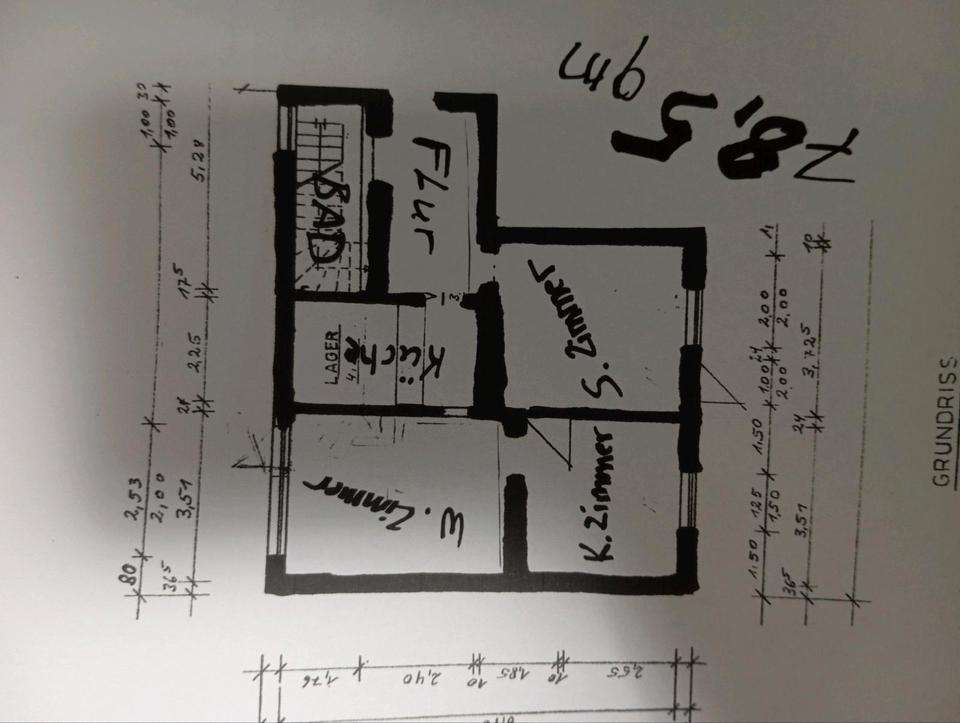 80 2,53 1,00 30
365 2,00 1,00
3,51 24 2,25 175 5,24
BAD
LAGER
Küche
Flur
E. Zimmer
S. Zimmer
K. Zimmer
78,5 qm
1,50 125 1,50 1,00 24 2,00
1,50 2,00 2,00
365 3,51 24 3,725
1,76 2,40 10 1,85 10 2,55
GRUNDRISS